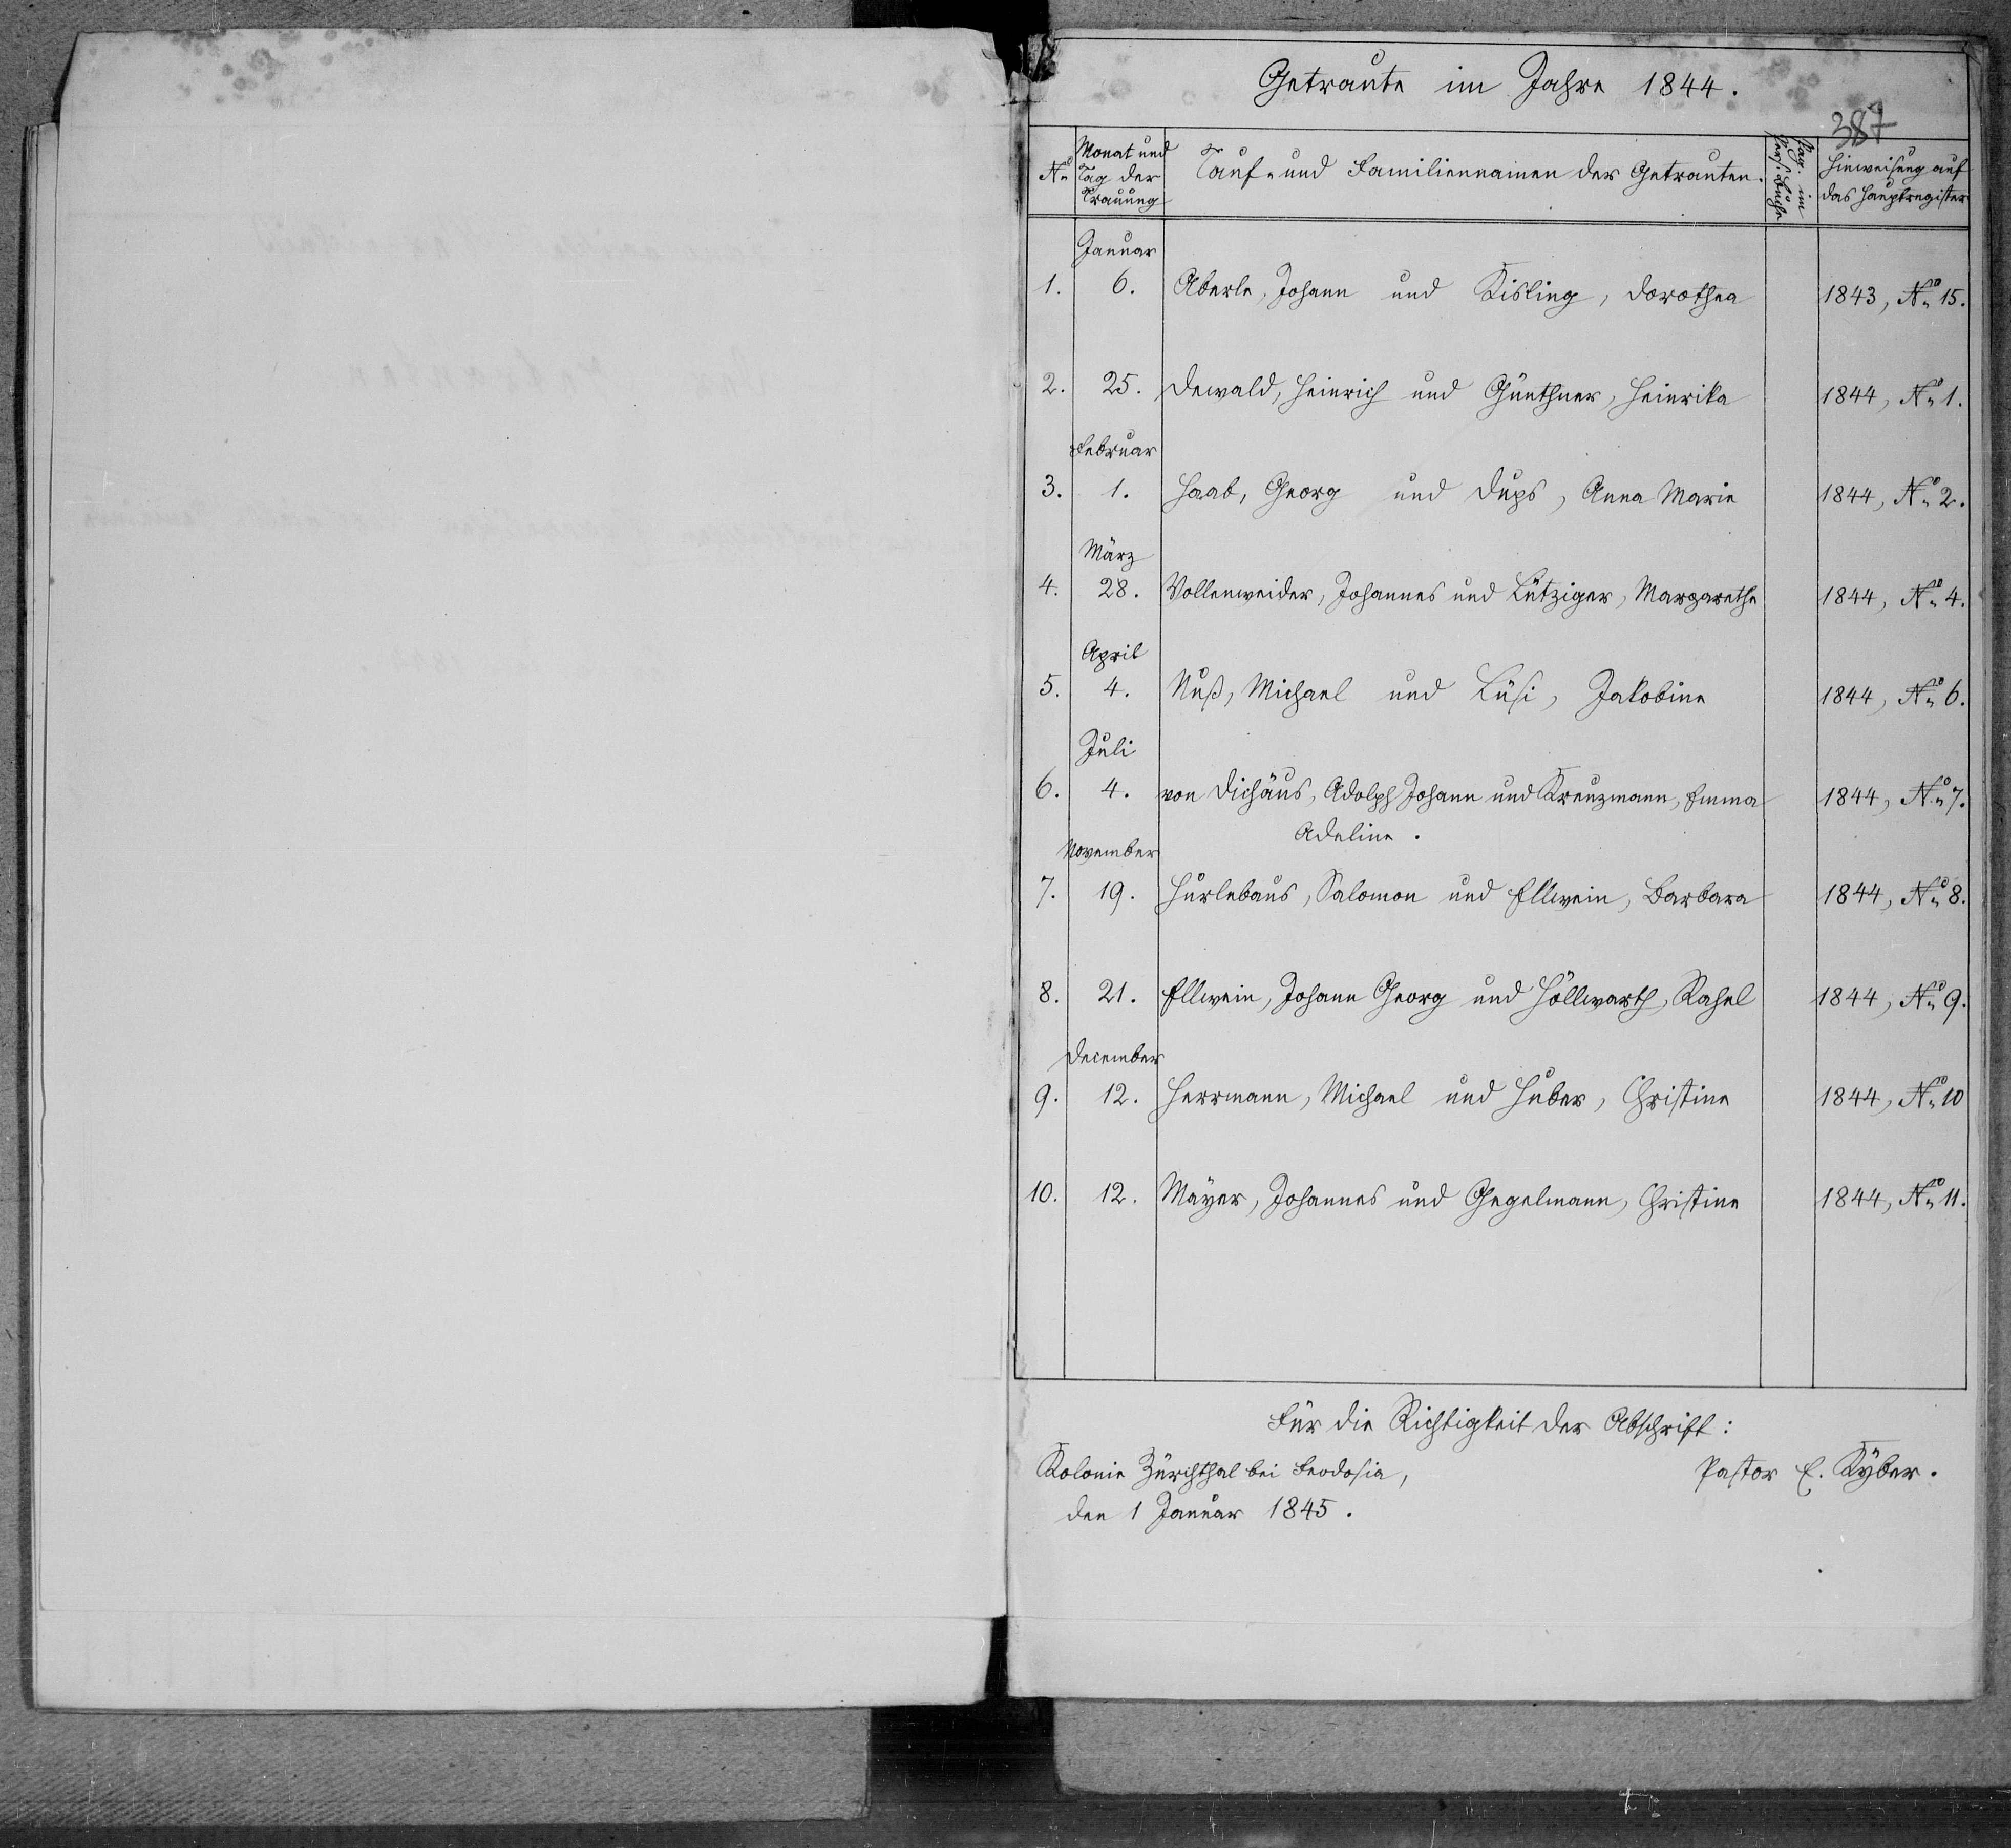 Getraute im Jahre 1844.
387
No Monat und Tag der Trauung Tauf- und Familiennamen der Getrauten. Pag. im Pers. Buche Hinweisung auf das Hauptregister
Januar
1. 6. Aberle, Johann und Kisling, Dorothea 1843, No 15.
2. 25. Dewald, Heinrich und Günthner, Heinrika 1844, No 1.
Februar
3. 1. Haab, Georg und Dups, Anna Marie 1844, No 2.
März
4. 28. Vollenweider, Johannes und Lütziger, Margarethe 1844, No 4.
April
5. 4. Nuß, Michael und Lüssi, Jakobine 1844, No 6.
Juli
6. 4. von Dichäus, Adolph Johann und Kreuzmann, Emma 1844, No 7.
Adeline.
November
7. 19. Hurlebaus, Salomon und Ellwein, Barbara 1844, No 8.
8. 21. Ellwein, Johann Georg und Höllwarth, Rahel 1844, No 9.
December
9. 12. Herrmann, Michael und Huber, Christine 1844, No 10
10. 12. Mayer, Johannes und Gegelmann, Christine 1844, No 11.
Für die Richtigkeit der Abschrift:
Kolonie Zürchthal bei Feodosia, Pastor E. Kyber.
den 1 Januar 1845.